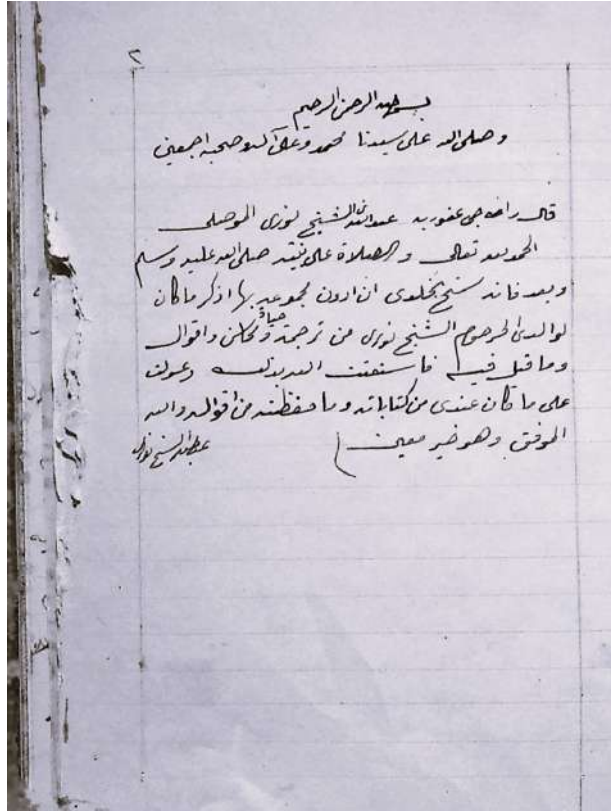 ٢
بسم الله الرحمن الرحيم
وصلى الله على سيدنا محمد وعلى آله وصحبه اجمعين
قال راجي عفو ربه عبدالله بن الشيخ نوري الموصلي
الحمد لله تعالى والصلاة على نبيه صلى الله عليه وسلم
وبعد فانه سنح بخلدي ان ادون مجموعه بها اذكر ما كان
لوالدي المرحوم الشيخ نوري من ترجمة حياة واقوال
وما قيل فيه فاستعنت الله بذلك وعولت
على ما كان عندي من كتاباته وما حفظته من اقواله والله
الموفق وهو خير معين
عبدالله الشيخ نوري